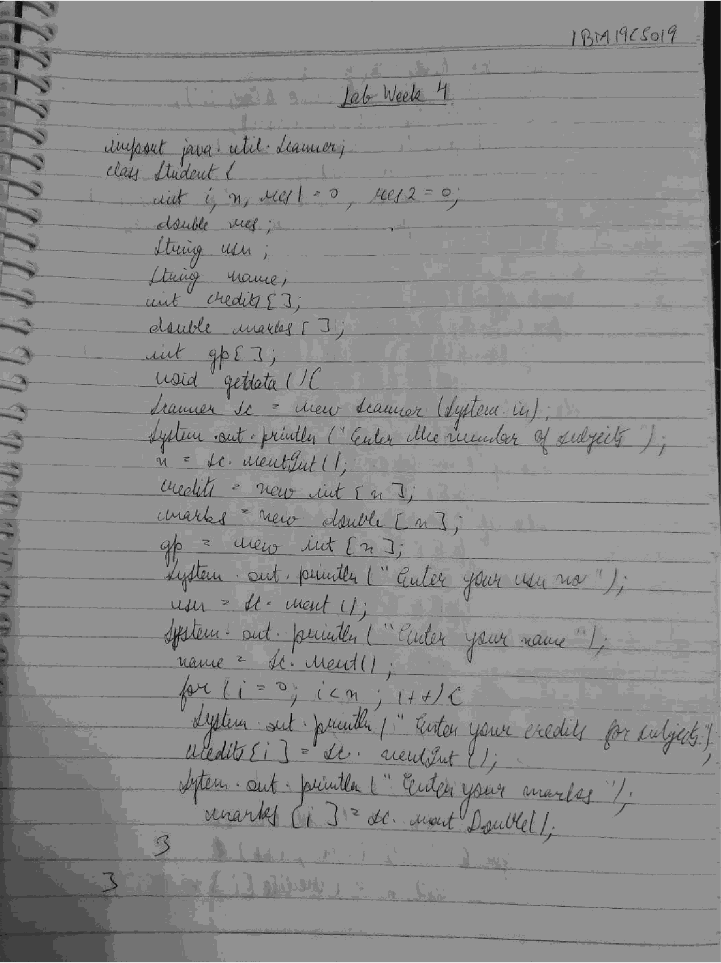 1BM19CS019
Lab Week 4
import java.util.Scanner;
class Student {
int i, n, res1 = 0, res2 = 0;
double res;
String usn;
String name;
int credits[];
double marks[];
int gp[];
void getdata(){
Scanner sc = new Scanner (System.in);
System.out.println ("Enter the number of subjects");
n = sc.nextInt();
credits = new int [n];
marks = new double [n];
gp = new int [n];
System.out.println ("Enter your usn no");
usn = sc.next();
System.out.println ("Enter your name");
name = sc.next();
for (i = 0; i<n; i++){
System.out.println (" Enter your credits for subjects");
credits[i] = sc.nextInt();
Sytem.out.println ("Enter your marks");
marks [i] = sc.next Double();
}
}